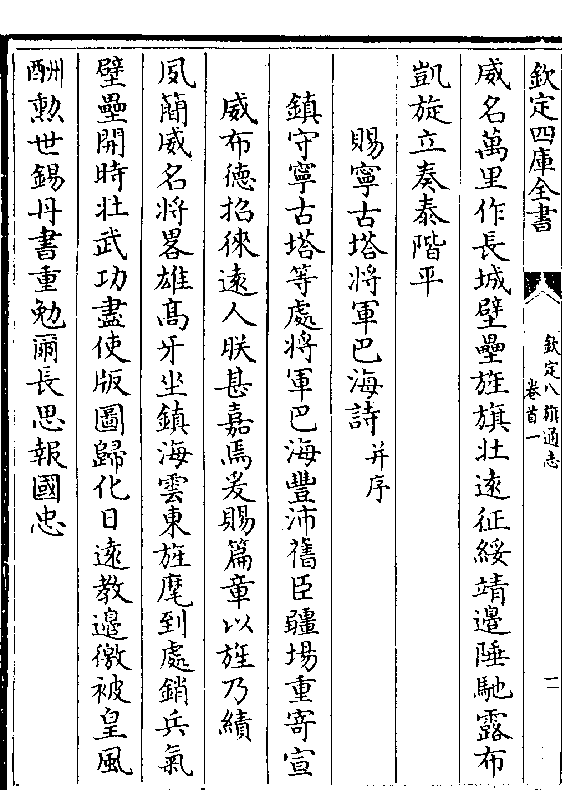 欽定四庫全書
欽定八旗通志
卷首一
二
威名萬里作長城壁壘旌旗壯遠征綏靖邊陲馳露布
凱旋立奏泰階平
賜寧古塔將軍巴海詩并序
鎮守寧古塔等處將軍巴海豐沛舊臣疆埸重寄宣
威布德招徠遠人朕甚嘉焉爰賜篇章以旌乃績
夙蕳威名將畧雄高牙坐鎮海雲東旌麾到處銷兵氣
壁壘開時壯武功盡使版圖歸化日遠教邊徼被皇風
酬勲世錫丹書重勉爾長思報國忠